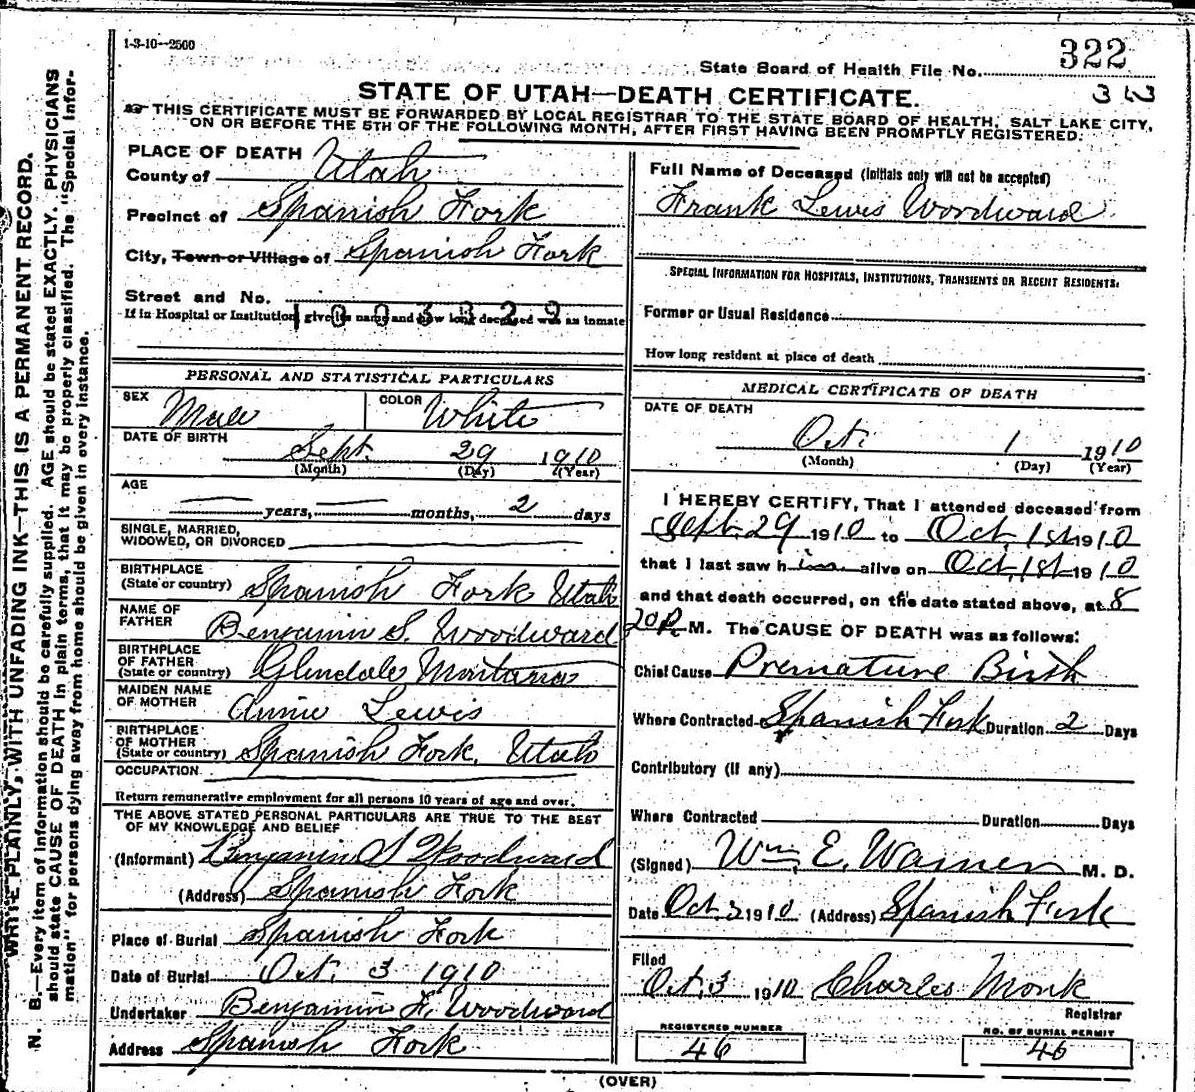 1-3-10--2500
State Board of Health File No. 322
STATE OF UTAH—DEATH CERTIFICATE.
THIS CERTIFICATE MUST BE FORWARDED BY LOCAL REGISTRAR TO THE STATE BOARD OF HEALTH, SALT LAKE CITY,
ON OR BEFORE THE 5TH OF THE FOLLOWING MONTH, AFTER FIRST HAVING BEEN PROMPTLY REGISTERED.
WRITE PLAINLY, WITH UNFADING INK—THIS IS A PERMANENT RECORD.
N. B.—Every item of information should be carefully supplied. AGE should be stated EXACTLY. PHYSICIANS
should state CAUSE OF DEATH in plain terms, that it may be properly classified. The "Special Infor-
mation" for persons dying away from home should be given in every instance.
PLACE OF DEATH
County of Utah
Precinct of Spanish Fork
City, Town or Village of Spanish Fork
Street and No.
If in Hospital or Institution give its name and how long deceased was an inmate
1003329
PERSONAL AND STATISTICAL PARTICULARS
SEX Male COLOR White
DATE OF BIRTH Sept. 29 1910
(Month) (Day) (Year)
AGE
years, months, 2 days
SINGLE, MARRIED,
WIDOWED, OR DIVORCED
BIRTHPLACE
(State or country) Spanish Fork Utah
NAME OF
FATHER Benjamin S. Woodward
BIRTHPLACE
OF FATHER
(State or country) Glendale Montana
MAIDEN NAME
OF MOTHER Annie Lewis
BIRTHPLACE
OF MOTHER
(State or country) Spanish Fork, Utah
OCCUPATION
Return remunerative employment for all persons 10 years of age and over.
THE ABOVE STATED PERSONAL PARTICULARS ARE TRUE TO THE BEST
OF MY KNOWLEDGE AND BELIEF
(Informant) Benjamin S Woodward
(Address) Spanish Fork
Place of Burial Spanish Fork
Date of Burial Oct. 3 1910
Undertaker Benjamin F. Woodward
Address Spanish Fork
Full Name of Deceased (Initials only will not be accepted)
Frank Lewis Woodward
SPECIAL INFORMATION FOR HOSPITALS, INSTITUTIONS, TRANSIENTS OR RECENT RESIDENTS.
Former or Usual Residence
How long resident at place of death
MEDICAL CERTIFICATE OF DEATH
DATE OF DEATH
Oct. 1 1910
(Month) (Day) (Year)
I HEREBY CERTIFY, That I attended deceased from
Sept. 29 1910 to Oct 1st 1910
that I last saw him alive on Oct. 1st 1910
and that death occurred, on the date stated above, at 8
20 P. M. The CAUSE OF DEATH was as follows:
Chief Cause Premature Birth
Where Contracted Spanish Fork Duration 2 Days
Contributory (if any)
Where Contracted Duration Days
(Signed) Wm. E. Warner M. D.
Date Oct. 3 1910 (Address) Spanish Fork
Filed
Oct. 3 1910 Charles Monk
Registrar
REGISTERED NUMBER
46
NO. OF BURIAL PERMIT
46
(OVER)